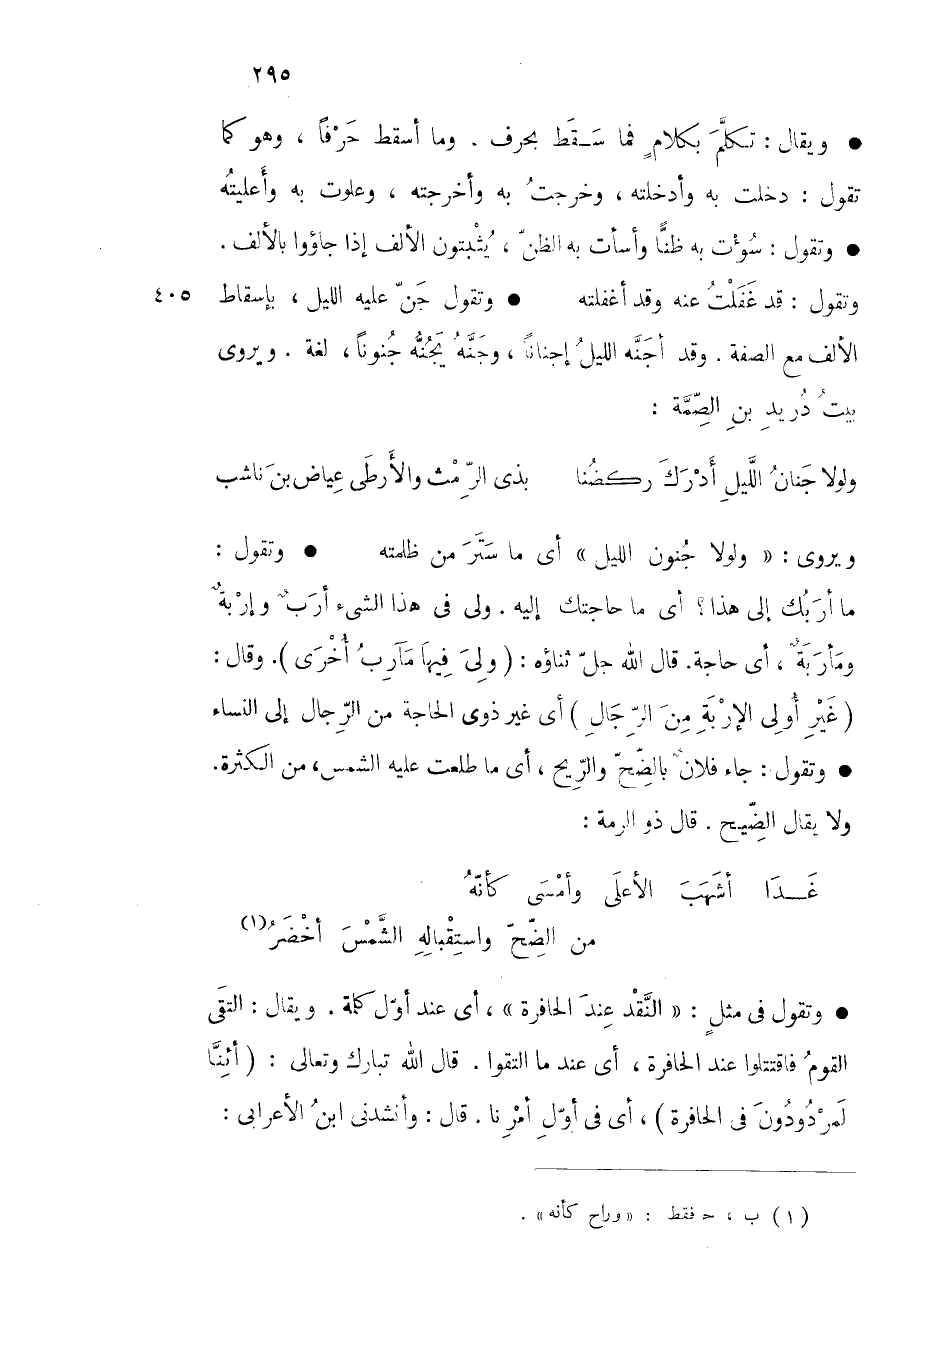 ٢٩٥
● ويقال : تكلَّمَ بكلامٍ فما سَـقَط بحرف . وما أسقط حَرْفاً ، وهو كما
تقول : دخلت به وأدخلته ، وخرجتُ به وأخرجته ، وعلوت به وأَعليتُه
● وتقول : سُؤْت به ظنًّا وأسأت به الظنّ ، يُثْبتون الألف إذا جاؤوا بالألف .
وتقول : قد غَفَلْتُ عنه وقد أغفلته ● وتقول جَنّ عليه الليل ، بإسقاط ٤٠٥
الألف مع الصفة . وقد أجَنَّه الليلُ إجناناً ، وجَنَّهُ يَجُنُّه جُنوناً ، لغة . ويروى
بيتُ دُريدِ بنِ الصِّمَّة :
ولولا جَنانُ اللَّيلِ أَدْرَكَ ركضُنا بذى الرِّمْث والأَرطَى عِياض بنَ ناشب
ويروى : « ولولا جُنون الليل » أى ما سَتَرَ من ظلمته ● وتقول :
ما أرَبُك إلى هذا ؟ أى ما حاجتك إليه . ولى فى هذا الشىء أرَبٌ وإرْبةٌ
ومَأرَبَةٌ ، أى حاجة. قال الله جلّ ثناؤه : ( ولِىَ فِيهَا مَآرِبُ أُخْرَى ). وقال :
( غَيْرِ أُولِى الإرْبَةِ مِنَ الرِّجَالِ ) أى غير ذوى الحاجة من الرِّجال إلى النساء
● وتقول : جاء فلانٌ بالضِّحّ والرِّيح ، أى ما طلعت عليه الشمس، من الكثرة.
ولا يقال الضِّيح . قال ذو الرمة :
غَــدَا أشَهَبَ الأعلَى وأمْسَى كأنّهُ
من الضِّحّ واستِقْبالِهِ الشَّمْسَ أخْضَرُ(١)
● وتقول فى مثلٍ : « النَّقْد عِندَ الحافرة » ، أى عند أوّل كلمة . ويقال : التقَى
القومُ فاقتتلوا عند الحافرة ، أى عند ما التقوا . قال الله تبارك وتعالى : ( أئِنَّا
لَمرْدُودُونَ فى الحافرة ) ، أى فى أوّلِ أمْرِنا . قال : وأنشدنى ابنُ الأعرابى :
( ١ ) ب ، ح فقط : « وراح كأنه » .